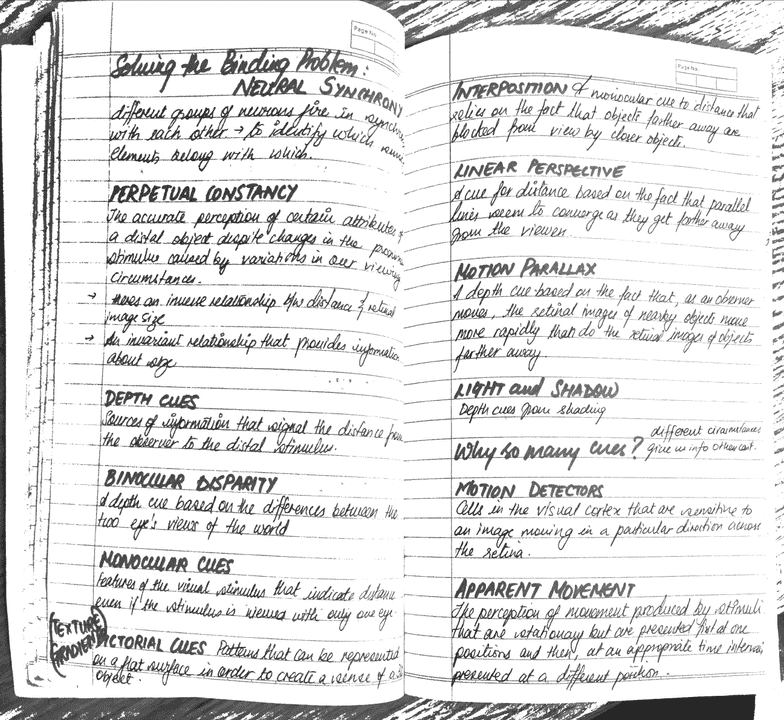 Page No.
Solving the Binding Problem:
NEURAL SYNCHRONY
different groups of neurons fire in
with each other → to identify which
elements belong with which.
PERPETUAL CONSTANCY
The accurate perception of certain attributes of
a distal object despite changes in the
stimulus caused by variations in our viewing
circumstances.
→ there's an inverse relationship b/w distance & retinal
image size
→ An invariant relationship that provides information
about size
DEPTH CUES
Sources of information that signal the distance from
the observer to the distal stimulus.
BINOCULAR DISPARITY
A depth cue based on the differences between the
two eye's views of the world
MONOCULAR CUES
Features of the visual stimulus that indicate distance
even if the stimulus is viewed with only one eye.
(TEXTURE
GRADIENT)
PICTORIAL CUES Patterns that can be represented
on a flat surface in order to create a sense of a
object.
Page No.
INTERPOSITION A monocular cue to distance that
relies on the fact that objects farther away are
blocked from view by closer objects.
LINEAR PERSPECTIVE
A cue for distance based on the fact that parallel
lines seem to converge as they get farther away
from the viewer.
MOTION PARALLAX
A depth cue based on the fact that, as an observer
moves, the retinal images of nearby objects move
more rapidly than do the retinal images of objects
farther away.
LIGHT and SHADOW
Depth cues from shading
Why so many cues? different circumstances
give us info others can't.
MOTION DETECTORS
Cells in the visual cortex that are sensitive to
an image moving in a particular direction across
the retina.
APPARENT MOVEMENT
The perception of movement produced by stimuli
that are stationary but are presented first at one
positions and then, at an appropriate time interval,
presented at a different position.